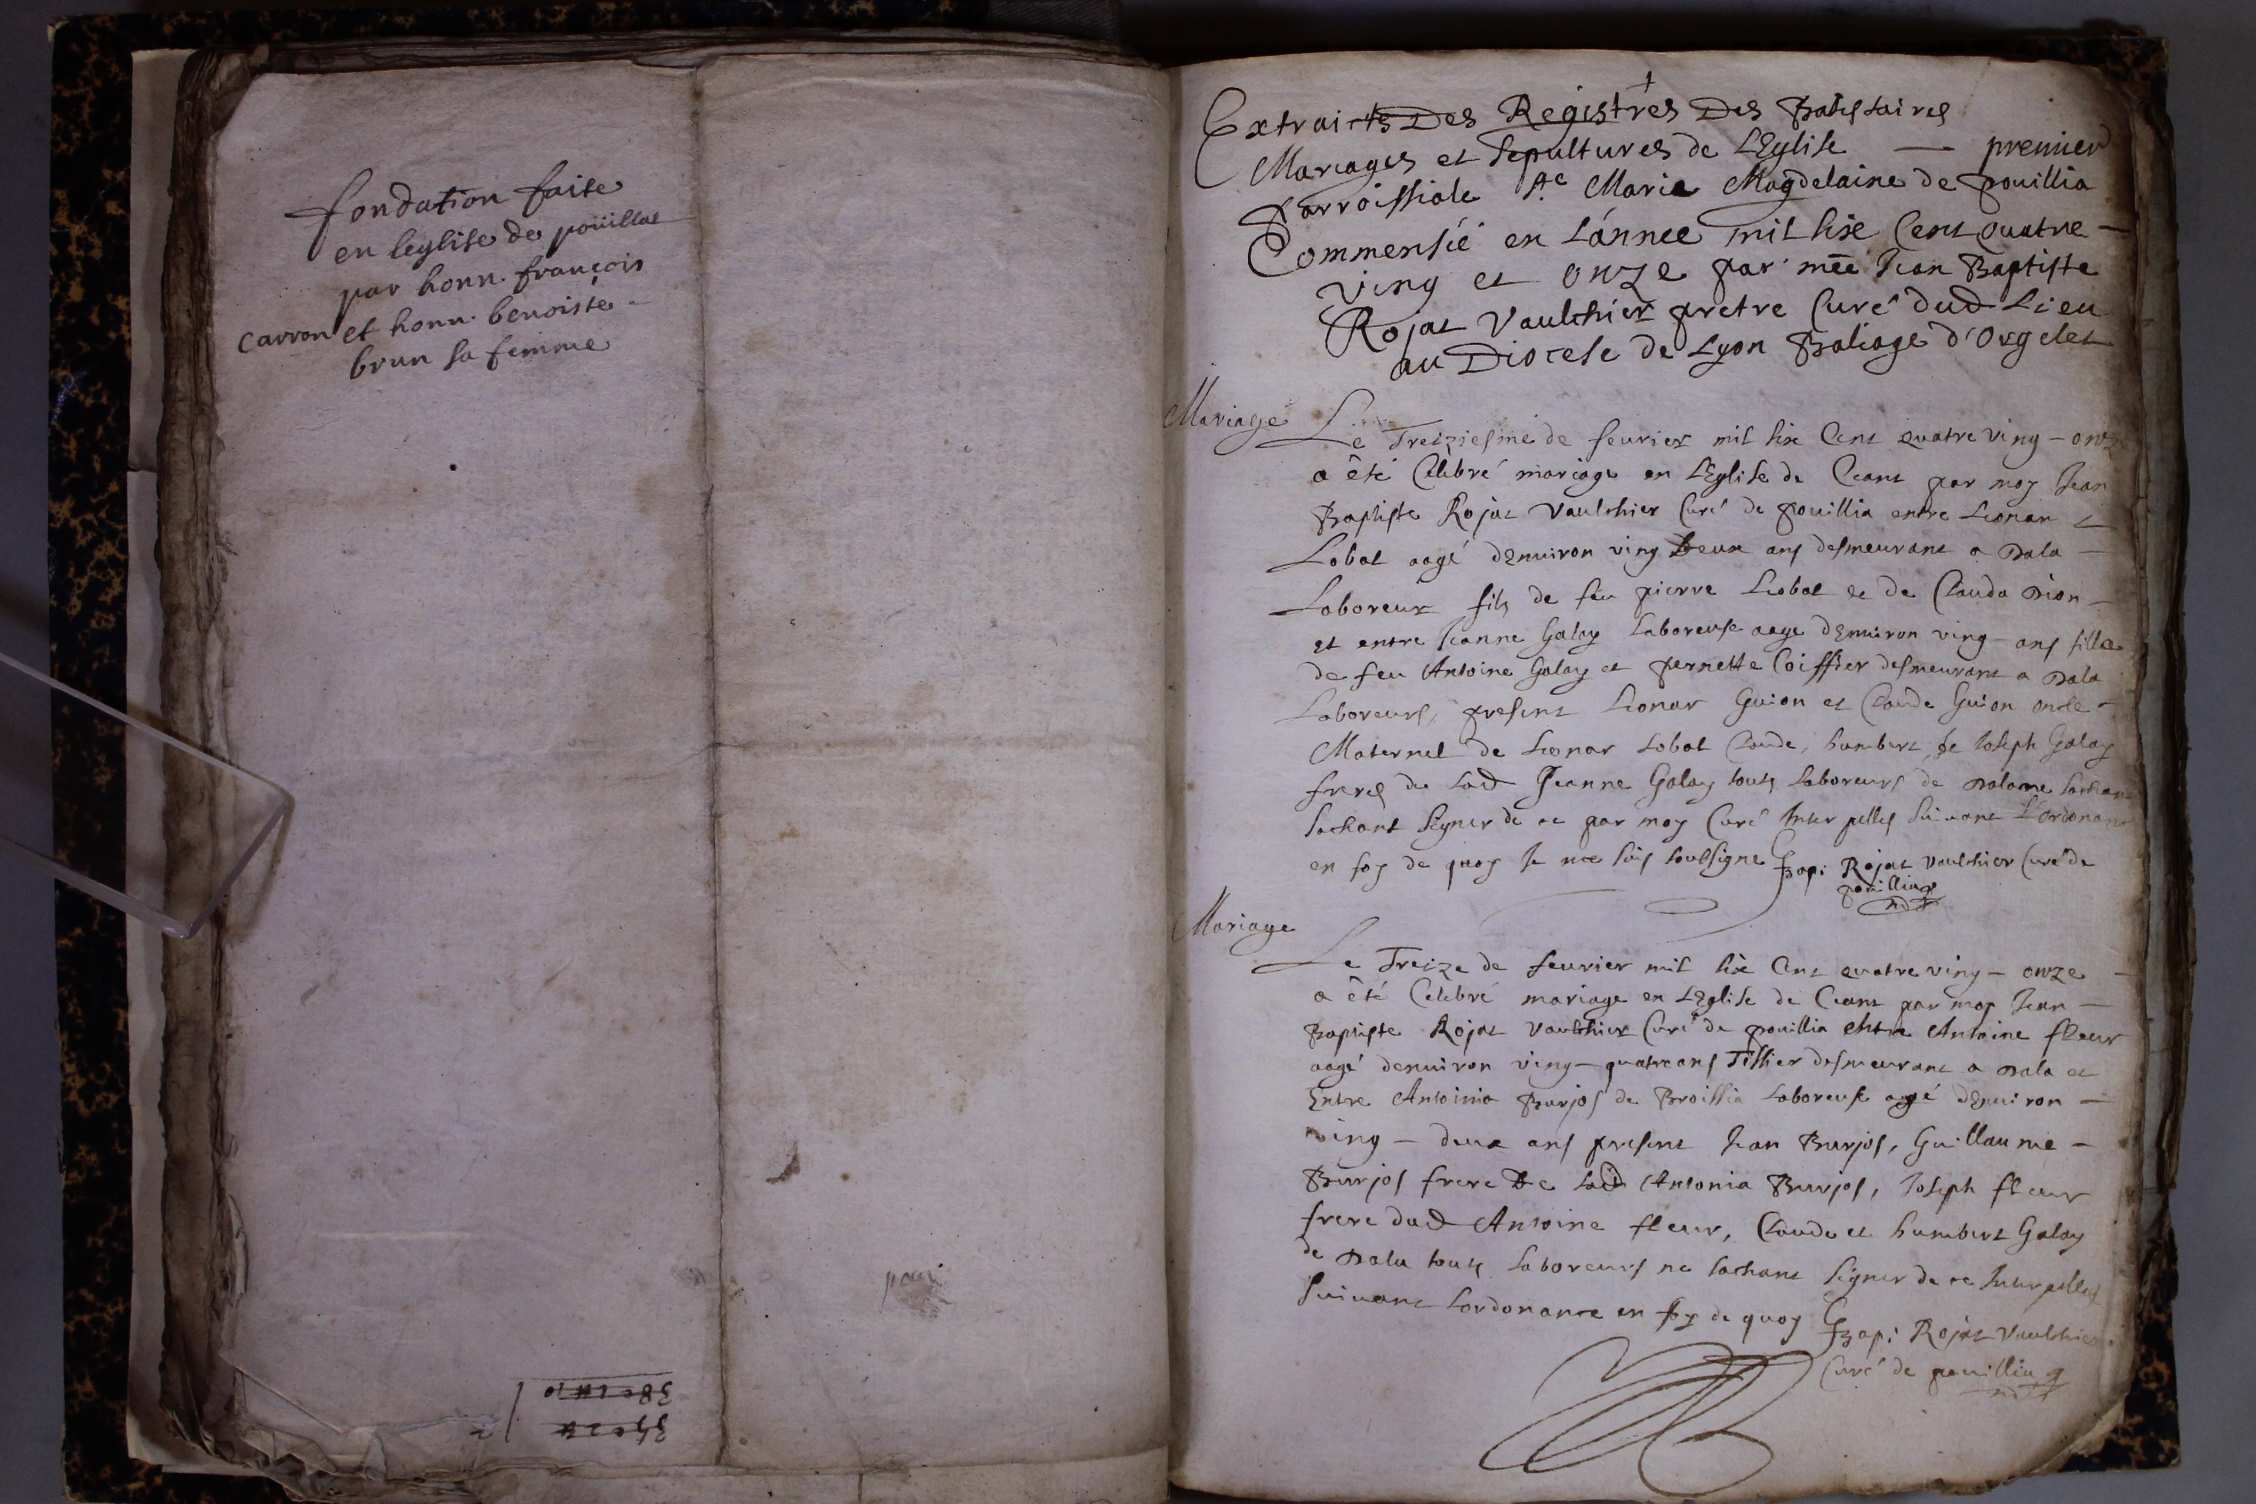 fondation faite
en leglise de poüillat
par honn. françois
carron et honn. benoiste
brun sa femme
Extraicts Des Registres Des Batistaires
Mariages et sepultures de LEglise — premier
Parroissiale Ste Marie Magdelaine de pouillia
Commensée en Lánnee mil sixe Cent quatre
ving et onze par mée Jean Baptiste
Rojat Vaulchier pretre Curé dud Lieu
au Diocese de Lyon Baliage d'Orgelet
Mariage
Le Treiziesme de feurier mil sixe Cent quatre ving - onze
a été Celebré mariage en LEglise de Ceant par moy Jean
Baptiste Rojat Vaulchier Curé de pouillia entre Leonar
Lobat aagé denuiron ving deux ans desmeurant a Dala
Laboreur fils de feu pierre Lobat et de Clauda Dion
et entre Jeanne Galay Laboreuse aage denuiron ving ans fille
de feu Antoine Galay et pernette Coiffier desmeurant a Dala
Laboreurs, present Leonar Guion et Claude Guion oncle
Maternel de Leonar Lobat Claude, humbert et Joseph Galay
freres de Lad Jeanne Galay touts Laboreurs de Dala ne sachant
sachant signer de ce par moy Curé Interpelles suivant L'ordonance
en foy de quoy Je me suis soubsigne J Bapi Rojat Vaulchier Curé de
pouillia
Mariage
Le Treize de feurier mil sixe Cent quatre ving - onze
a été Celebré mariage en LEglise de Ceant par moy Jean
Baptiste Rojat Vaulchier Curé de pouillia entre Antoine fleur
aagé denuiron ving - quatre ans Tissier desmeurant a Dala et
Entre Antoinia Burjos de Broissia Laboreuse aagé denuiron
ving - deux ans present Jean Burjos, Guillaume
Burjos frere De Lad Antonia Burjos, Joseph fleur
frere dud Antoine fleur, Claude et humbert Galay
de Dala touts Laboreurs ne sachant signer de ce Interpelles
suivant Lordonance en foy de quoy J Bapi Rojat Vaulchier
Curé de pouillia